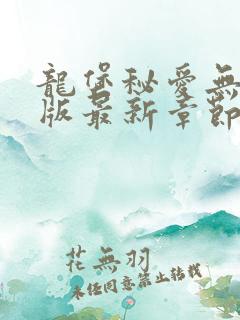 龍堡秘愛無
版最新章節
花無羽
未經同意禁止轉載